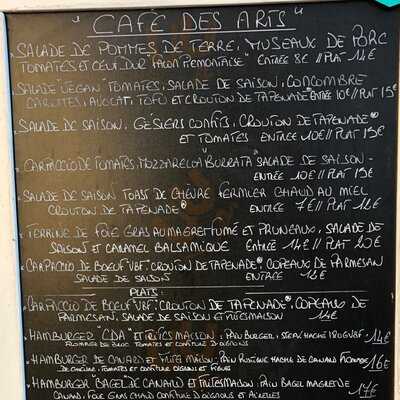 "CAFÉ DES ARTS"
SALADE DE POMMES DE TERRE, MUSEAUX DE PORC
TOMATES ET OEUF DUR FAÇON PIEMONTAISE" ENTRÉE 8€ // PLAT 14€
SALADE "VEGAN" TOMATES, SALADE DE SAISON, CONCOMBRE
CAROTTES, AVOCAT, TOFU ET CROUTON DE TAPENADE* ENTRÉE 10€ // PLAT 15€
SALADE DE SAISON, GÉSIERS CONFITS, CROUTON DE TAPENADE*
ET TOMATES ENTRÉE 10€ // PLAT 15€
CARPACCIO DE TOMATES, MOZZARELLA BURRATA SALADE DE SAISON -
ENTRÉE 10€ // PLAT 15€
SALADE DE SAISON TOAST DE CHÈVRE FERMIER CHAUD AU MIEL
CROUTON DE TAPENADE* ENTRÉE 7€ // PLAT 12€
TERRINE DE FOIE GRAS AU MAGRET FUMÉ ET PRUNEAUX, SALADE DE
SAISON ET CARAMEL BALSAMIQUE ENTRÉE 14€ // PLAT 20€
CARPACCIO DE BOEUF "VBF", CROUTON DE TAPENADE*, COPEAUX DE PARMESAN
SALADE DE SAISON ENTRÉE 12€
PLATS:
CARPACCIO DE BOEUF "VBF", CROUTON DE TAPENADE*, COPEAUX DE
PARMESAN, SALADE DE SAISON ET FRITES MAISON 14€
HAMBURGER "CDA" ET FRITES MAISON: PAIN BURGER, STEAK HACHÉ 14€
TOMATES ET CONFITURE D'OIGNONS
HAMBURGER DE CANARD ET FRITES MAISON: PAIN RUSTIQUE HACHÉ DE CANARD FROMAGE 16€
DE CHÈVRE, TOMATES ET CONFITURE OIGNONS ET FIGUES
HAMBURGER BAGEL DE CANARD ET FRITES MAISON: PAIN BAGEL MAGRET DE 17€
CANARD, FOIE GRAS CHAUD CONFITURE D'OIGNONS ET AIRELLES